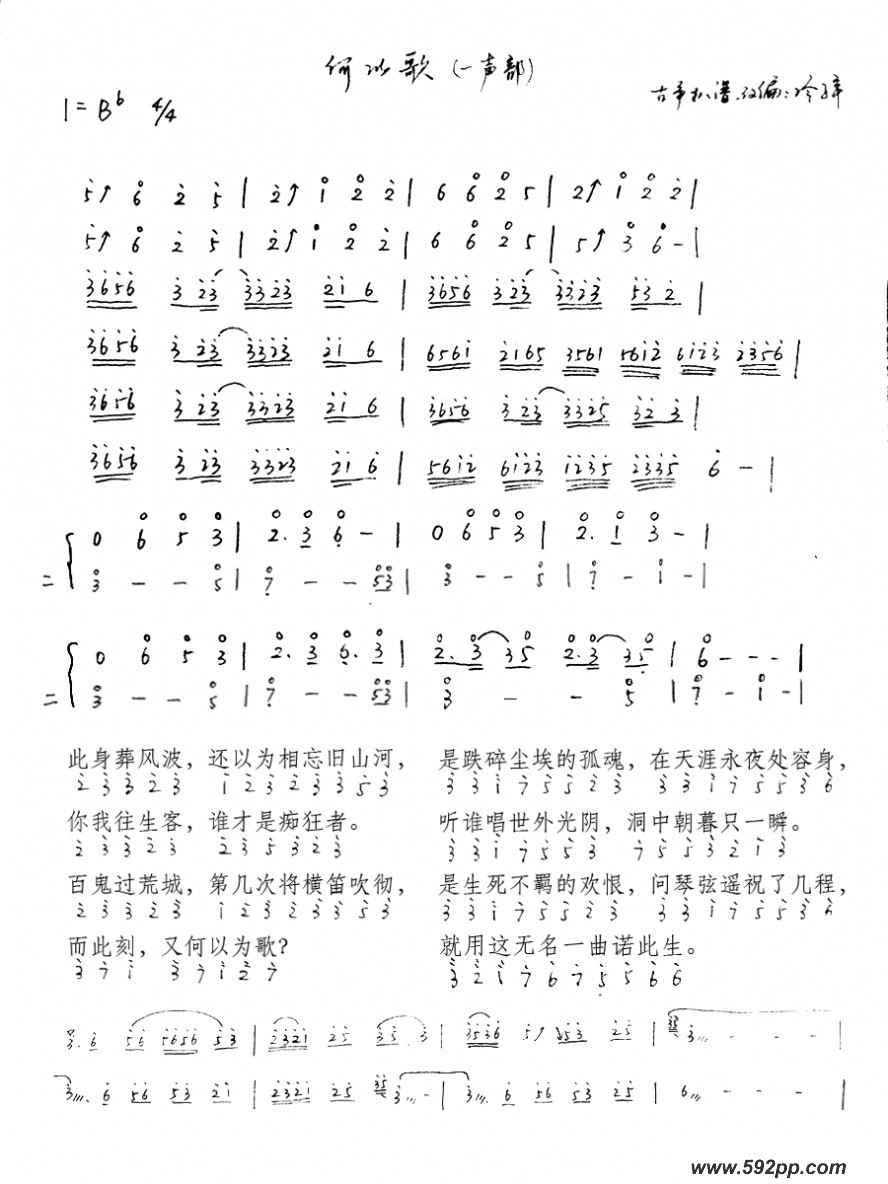 何以歌(一声部)
1=B♭ 4/4
古筝扒谱.改编:冷
5↑ 6 2 5 | 2↑ 1 2 2 | 6 6 2 5 | 2↑ 1 2 2 |
5↑ 6 2 5 | 2↑ 1 2 2 | 6 6 2 5 | 5↑ 3 6 - |
3656 3 23 3323 21 6 | 3656 3 23 3323 53 2 |
3656 3 23 3323 21 6 | 6561 2165 3561 5612 6123 2356 |
3656 3 23 3323 21 6 | 3656 3 23 3325 32 3 |
3656 3 23 3323 21 6 | 5612 6123 1235 2335 6 - |
0 6 5 3 | 2. 3 6 - | 0 6 5 3 | 2. 1 3 - |
二 3 - - 5 | 7 - - 53 | 3 - - 5 | 7 - 1 - |
0 6 5 3 | 2. 3 6. 3 | 2. 3 35 2. 3 35 | 6 - - - |
二 3 - - 5 | 7 - - 53 | 3 - - 5 | 7 - 1 - |
此身葬风波，还以为相忘旧山河， 是跌碎尘埃的孤魂，在天涯永夜处容身，
2 3 3 2 3 1 2 3 2 3 3 5 3 3 3 1 7 5 5 2 3 3 3 1 7 5 5 3 6
你我往生客，谁才是痴狂者。 听谁唱世外光阴，洞中朝暮只一瞬。
2 3 3 2 3 2 3 5 3 2 3 3 3 1 7 5 5 3 7 5 5 3 2 1 3
百鬼过荒城，第几次将横笛吹彻， 是生死不羁的欢恨，问琴弦遥祝了几程，
2 3 3 2 3 1 2 3 2 3 3 5 3 3 3 1 7 5 5 2 3 3 3 1 7 5 5 3 6
而此刻，又何以为歌？ 就用这无名一曲诺此生。
3 7 1 3 7 1 2 7 3 2 1 7 6 7 5 5 6 6
3. 6 56 5656 53 | 2321 25 35. 3 | 3536 5↑ 53 25 | 3 - - -
3 . 6 56 53 21 | 2321 25 3 - | 3 . 6 56 53 25 | 6 - - - |
www.592pp.com